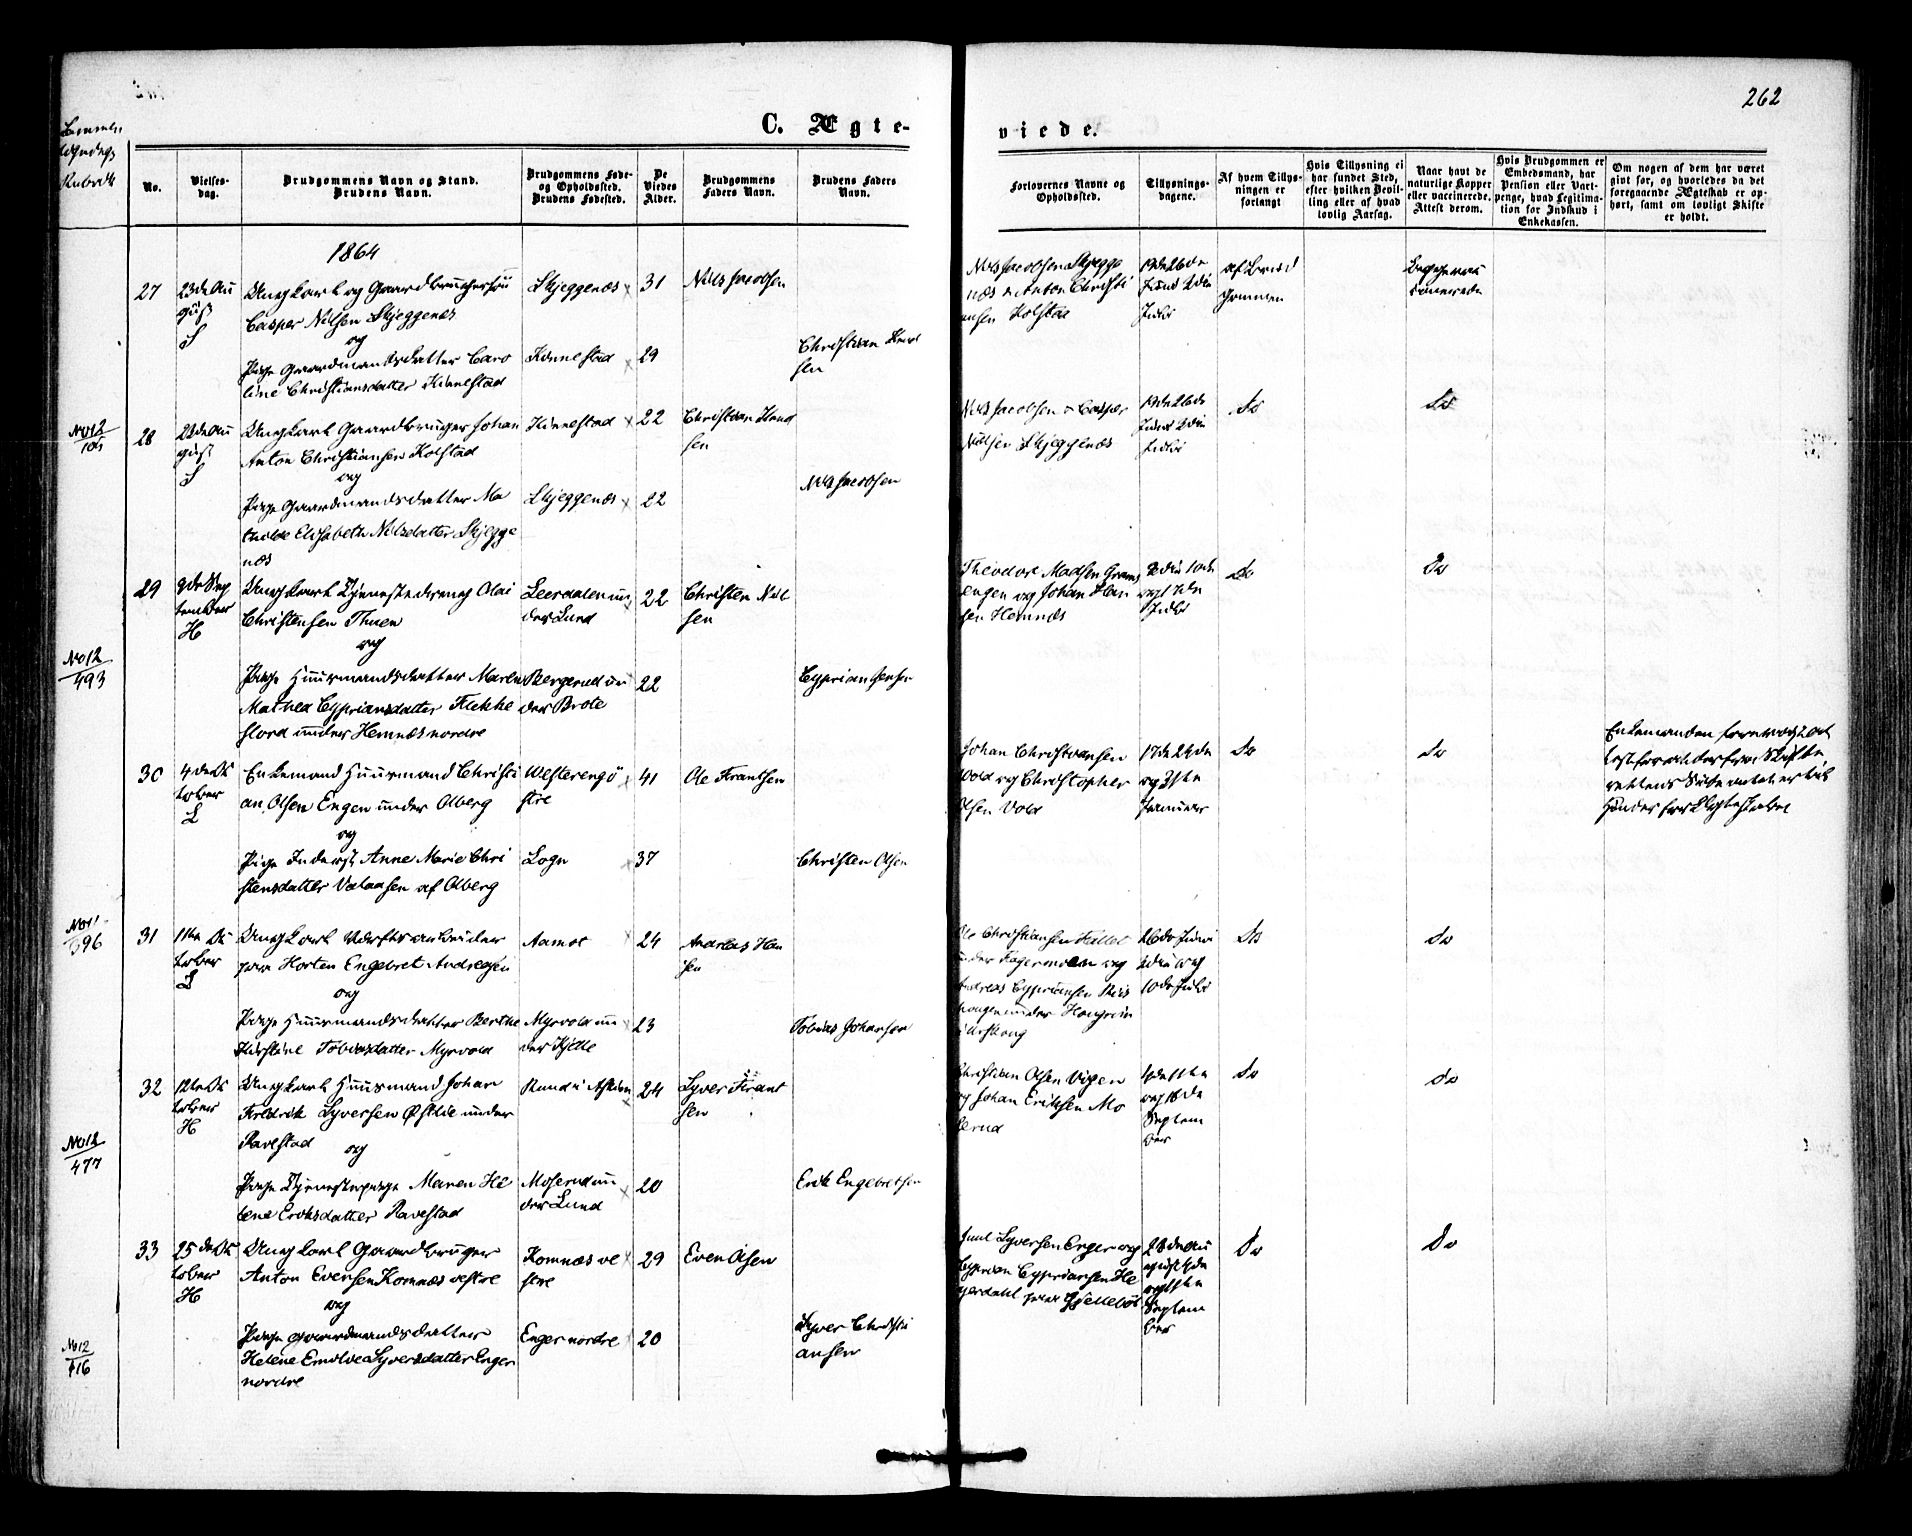 262
C. Ægte-
viede.
No.
Vielses-
dag.
Brudgommens Navn og Stand.
Brudens Navn.
Brudgommens Føde-
og Opholdssted.
Brudens Fødested.
De
Viedes
Alder.
Brudgommens
Faders Navn.
Brudens Faders
Navn.
Forlovernes Navne og
Opholdssted.
Tillysnings-
dagene.
Af hvem Tillys-
ningen er
forlangt
Hvis Tillysning ei
har fundet Sted,
efter hvilken Bevil-
ling eller af hvad
lovlig Aarsag.
Naar havt de
naturlige Kopper
eller vaccinerede.
Attest derom.
Hvis Brudgommen er
Embedsmand, har
Pension eller Vart-
penge, hvad Legitima-
tion for Indskud i
Enkekassen.
Om nogen af dem har været
givt før, og hvorledes da det
foregaaende Ægteskab er op-
hørt, samt om lovligt Skifte
er holdt.
1864
27
23de Au
gust
Ungkarl og Gaardbrugersøn
Casper Nilsen Skjeggenæs
og
Pige Gaardmandsdatter Caro
line Christiansdatter Kinnestad
Skjeggenæs
Kinnestad
31
29
Nils Jacobsen
Christian
sen
Nils Jacobsen Skjegge
næs & Anton Christi
ansen Kolstad
19de 26de
Juni 3die
Juli
af Brud
gommen
Begge vac
cinerede
No 12
28
23de Au
gust
Ungkarl Gaardbruger Johan
Anton Christiansen Kolstad
og
Pige Gaardmandsdatter Ma
thilde Elisabeth Nilsdatter Skjegge
næs
Kinnestad
Skjeggenæs
22
22
Christian
sen
Nils Jacobsen
Nils Jacobsen & Casper
Nilsen Skjeggenæs
19de 26de
Juni 3die
Juli
Do
Do
29
9de Sep
tember
H
Ungkarl Tjenestedreng Olai
Christensen Thuen
og
Pige Huusmandsdatter Maren
Mathea Cypriansdatter Flekke
fjord under Hemnæs nordre
Leerdalen un
der Lund
Bergerud un
der Brote
22
22
Christen Nil
sen
Cyprian Jensen
Theodor Madsen
engen og Johan Han
sen Hemnæs
3die 10de
og 17de
Juli
Do
Do
No 12
493
30
4de Ok
tober
L
Enkemand Huusmand Christi
an Olsen Engen under Olberg
og
Pige Inderst Anne Marie Chri
stensdatter Valaasen af Olberg
Westereng ø
stre
Logn
41
37
Ole Frantsen
Christen Olsen
Johan Christiansen
Vold og Christopher
Olsen Vold
17de 24de
og 31te
Januar
Do
Do
Enkemanden
31
11te Ok
tober
L
Ungkarl Værftsarbeider
paa Horten Engebret Andreasen
og
Pige Huusmandsdatter Berthe
Kirstine Tobiasdatter Myrvold
Aamot
Myrvold un
der Kjelle
24
23
Andreas Han
sen
Tobias Johansen
Ole Christiansen Fallet
under Fagermoen og
Andreas Cypriansen
26de Juni
3die og
10de Juli
Do
Do
No 11
396
32
12te Ok
tober
H
Ungkarl Huusmand Johan
Fredrik Syversen Østlie under
Ravestad
og
Pige Tjenestepige Maren He
lene Eriksdatter Ravestad
Rund i Askim
Moserud un
der Lund
24
20
Syver Frant
sen
Erik Engebretsen
Christian Olsen Vigen
og Johan Eriksen Mo
serud
4de 11te
og 18de
Septem
ber
Do
do
No 12
477
33
25de Ok
tober
H
Ungkarl Gaardbruger
Anton Evensen Komnæs vestre
og
Pige Gaardmandsdatter
Helene Emilie Syversdatter Enger
nordre
Komnæs ve
stre
Enger nordre
29
20
Even Olsen
Syver Christi
ansen
Juul Syversen Enger og
Cyprian Cypriansen He
28de Au
gust 4de
og 11te
Septem
ber
Do
Do
No 12